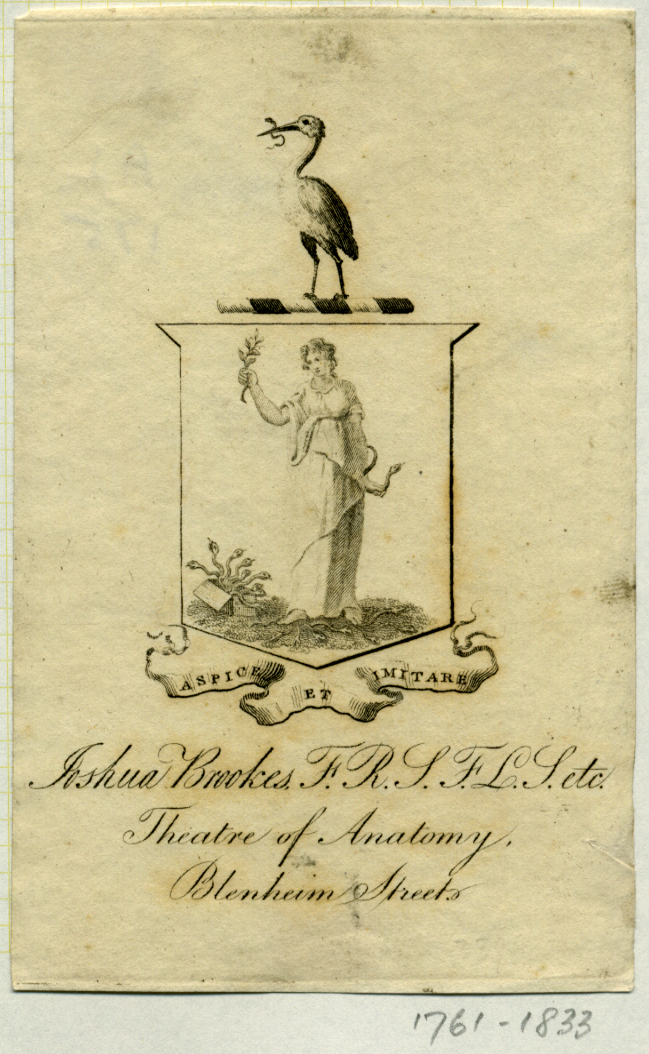 ASPICE ET IMITARE
Joshua Brookes, F. R. S. F. L. S. etc.
Theatre of Anatomy,
Blenheim Street.
1761 - 1833